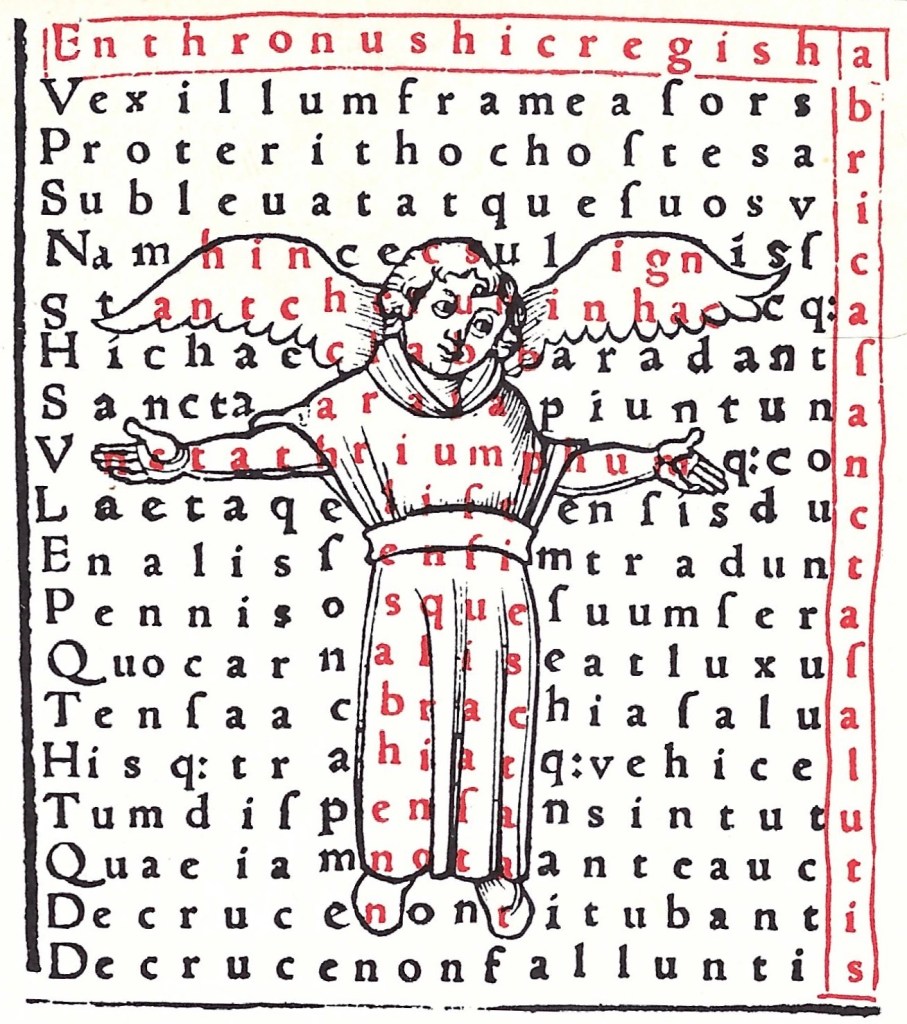 Enthronushicregisha
Vexillumframeaſorsb
Proterithochoſtesar
Subleuatatqueſuosvi
Namhincecsulignisſc
Stantcherubinhaecq:a
Hichaeclabbaradantſ
Sanctaararapiuntuna
Vnctathriumphumq:con
Laetaqeliſeenſisduc
Enalisſenſimtradunt
Pennisosqueſuumſera
Quocarnaliseatluxuſ
Tenſaacbrachiaſalua
Hisq:trahiatq:vehicel
Tumdiſpenſansintutu
Quaeiamnotaanteauct
Decrucenontitubanti
Decrucenonfalluntis